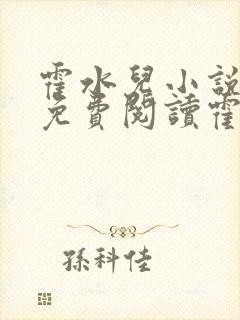 霍水兒小說
免費閱讀霍
孫科佳